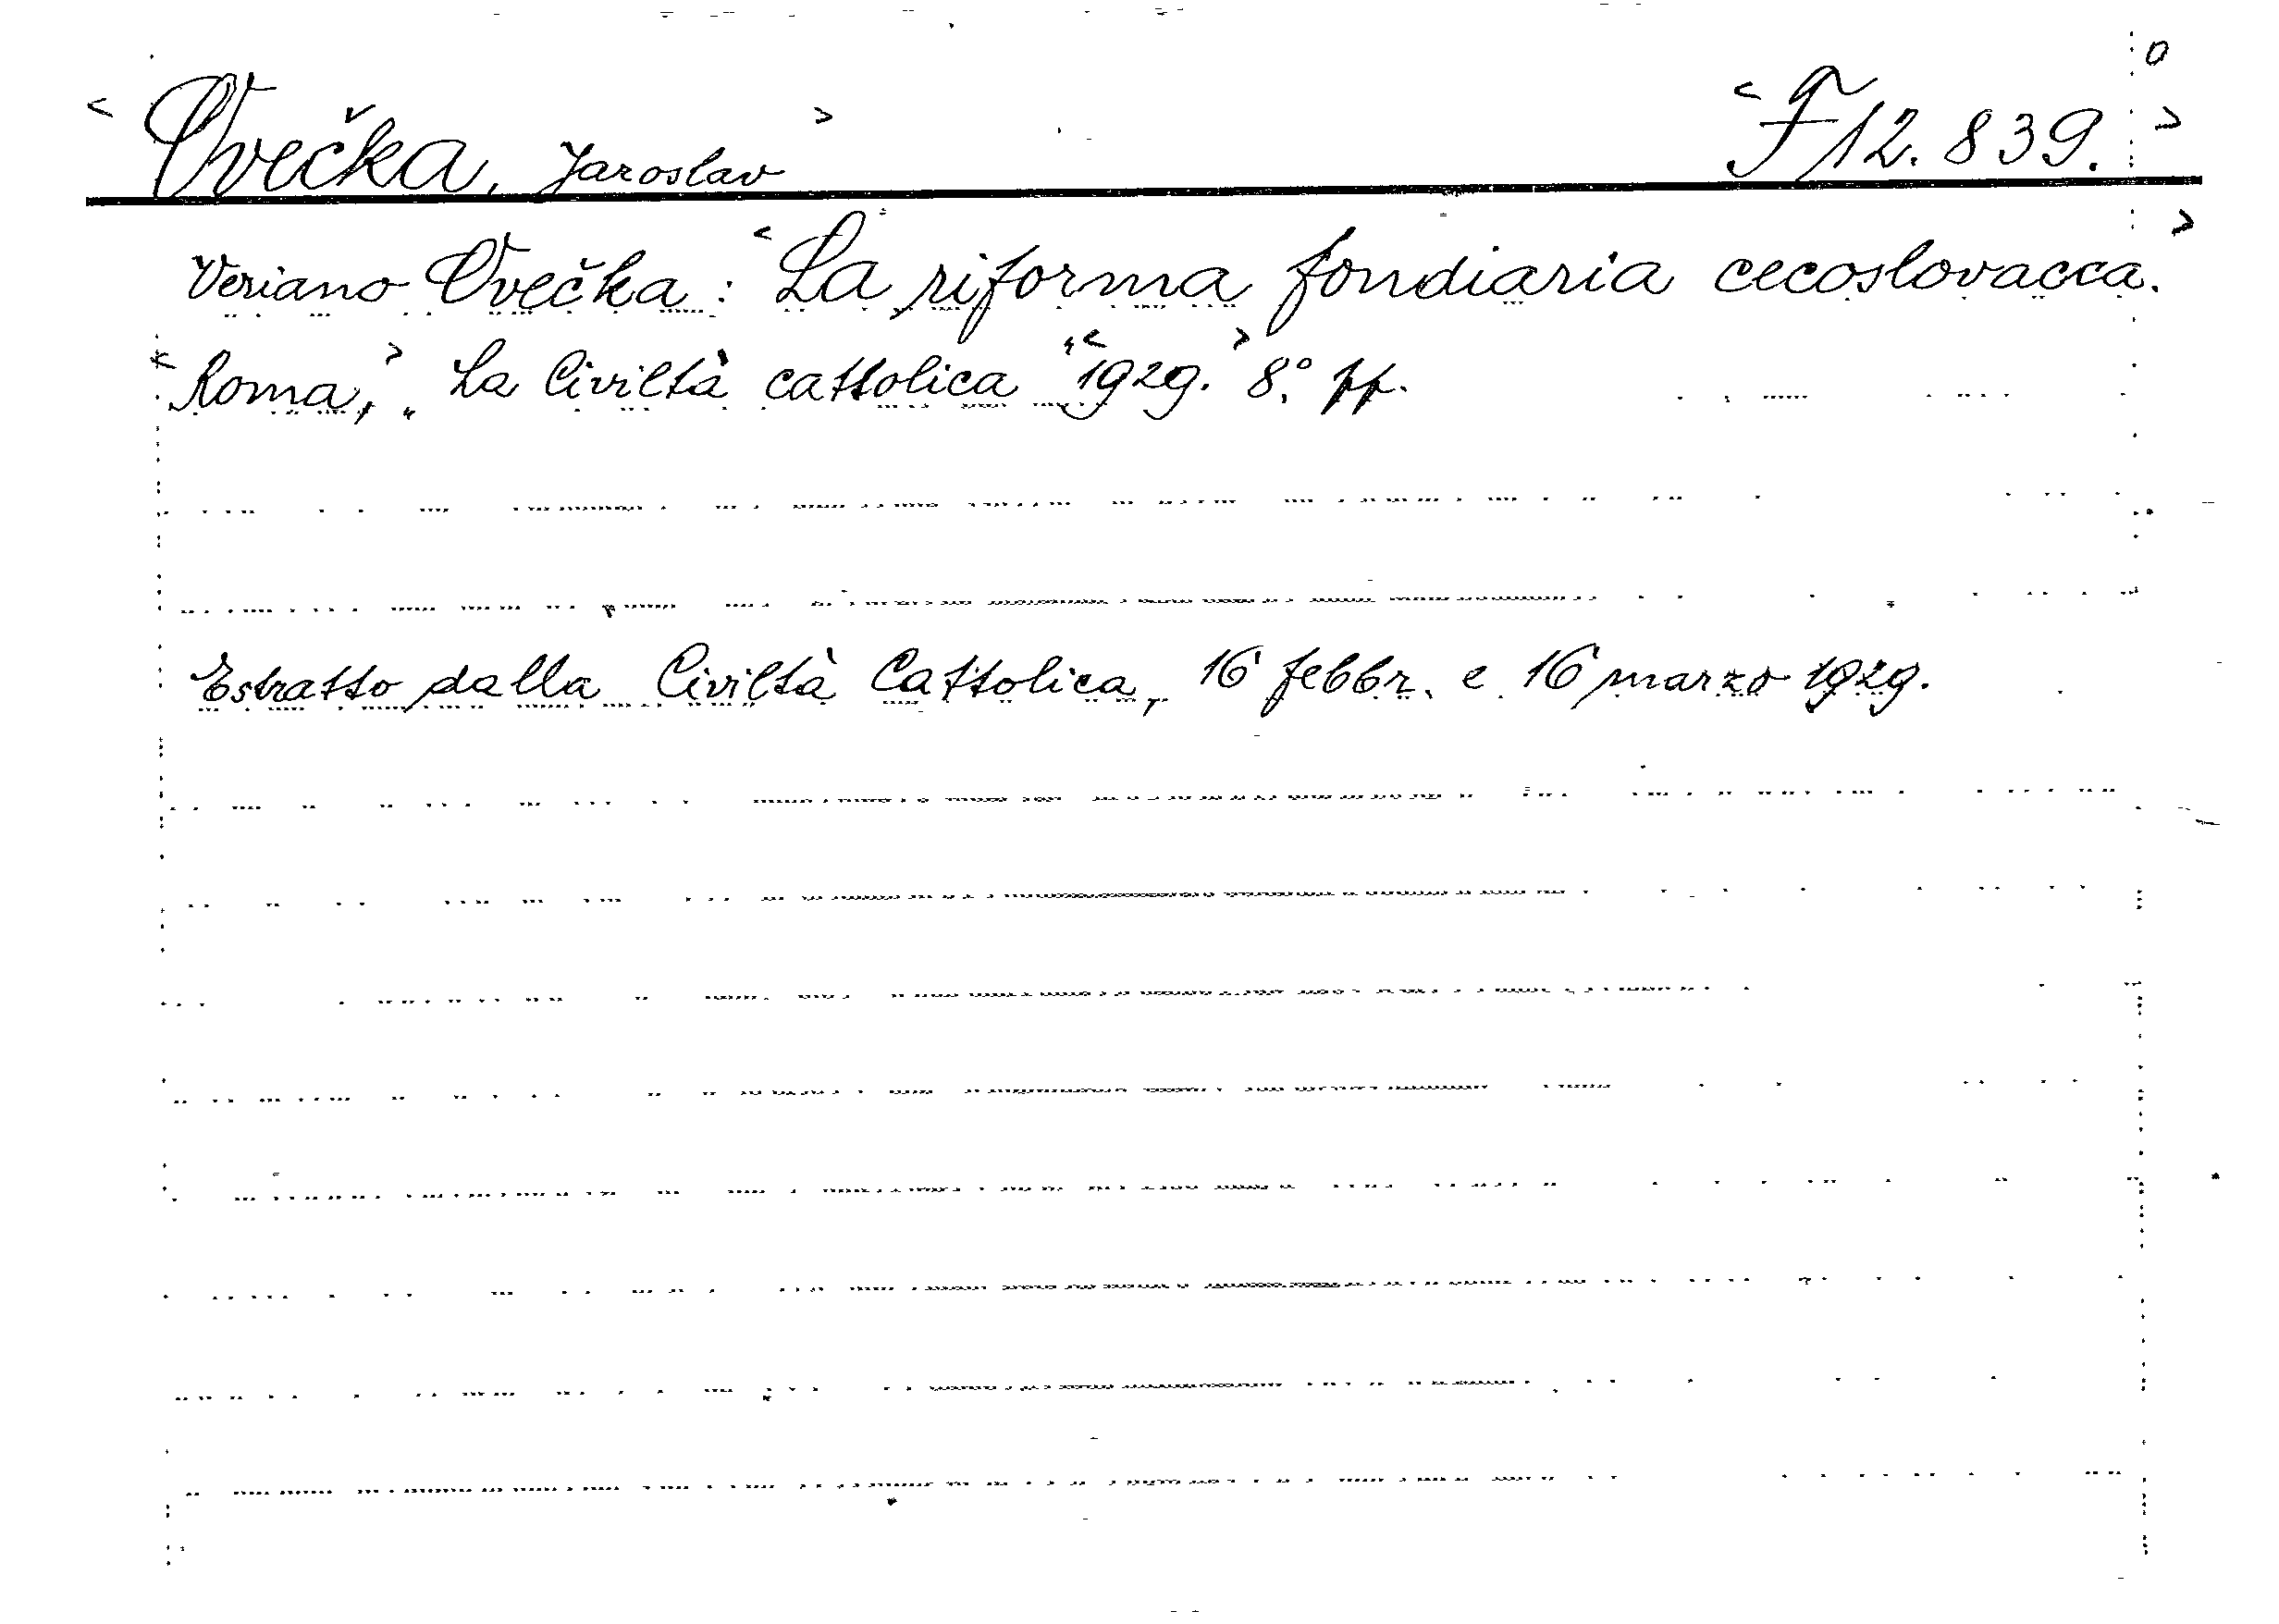 <Ovečka, Jaroslav> <F 12.839.>
Veriano Ovečka: <La riforma fondiaria cecoslovacca.>
<Roma,> „La Civiltà cattolica" <1929.> 8.° pp.
Estratto dalla Civiltà Cattolica, 16 febbr. e 16 marzo 1929.